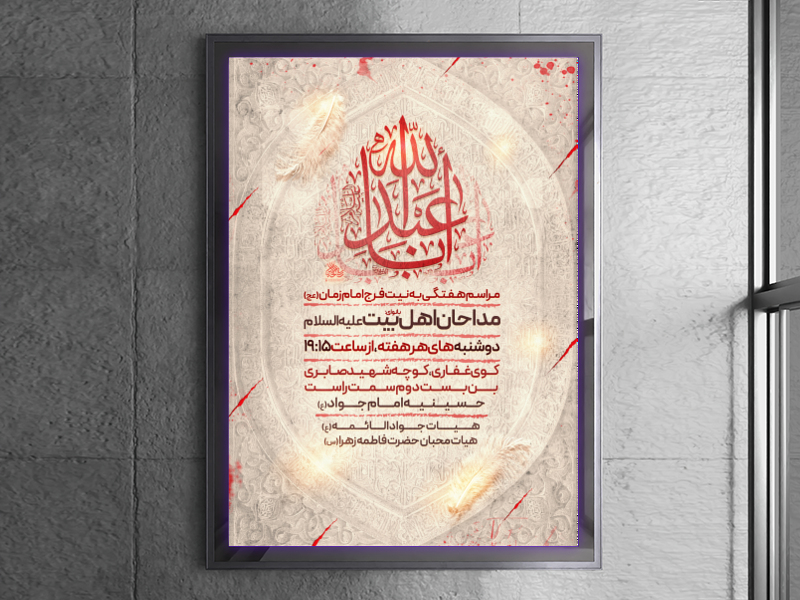 أبا عبدالله
مراسم هفتگی به نیت فرج امام زمان (عج)
بانوای
مداحان اهل بیت علیه السلام
دوشنبه های هر هفته ، از ساعت ۱۹:۱۵
کوی غفاری، کوچه شهید صابری
بن بست دوم سمت راست
حسینیه امام جواد (ع)
هیات جواد الائمه (ع)
هیات محبان حضرت فاطمه زهرا (س)